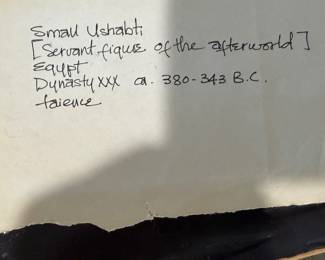 Small Ushabti
[Servant figure of the afterworld]
Egypt
Dynasty XXX ca. 380-343 B.C.
faience